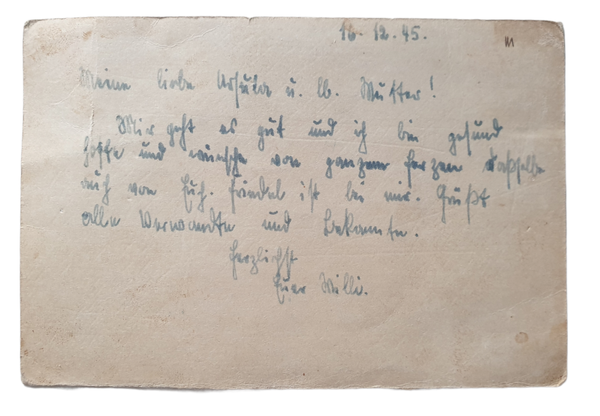 16. 12. 45.
Meine liebe Ursula u. lb. Mutter!
Mir geht es gut und ich bin gesund
hoffe und wünsche von ganzem Herzen dasselbe
auch von Euch. Friedel ist bei mir. Grüßt
alle Verwandte und Bekannte.
Herzlichst
Euer Willi.